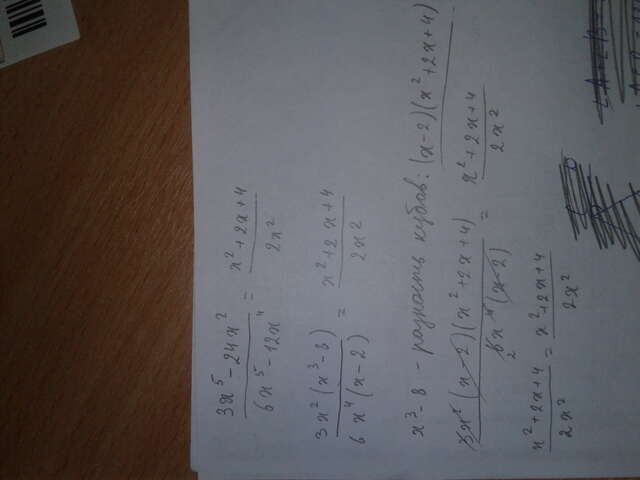 (3x^5 - 24x^2)/(6x^5 - 12x^4) = (x^2 + 2x + 4)/(2x^2)
(3x^2(x^3 - 8))/(6x^4(x - 2)) = (x^2 + 2x + 4)/(2x^2)
x^3 - 8 - разность кубов: (x - 2)(x^2 + 2x + 4)
(3x^2(x - 2)(x^2 + 2x + 4))/(6x^4(x - 2)) = (x^2 + 2x + 4)/(2x^2)
2
(x^2 + 2x + 4)/(2x^2) = (x^2 + 2x + 4)/(2x^2)